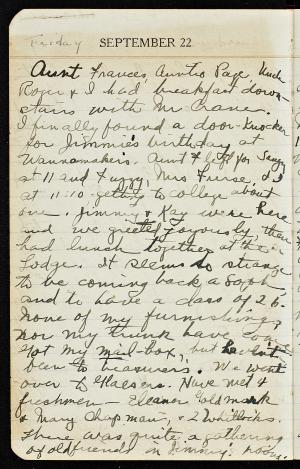 Friday
SEPTEMBER 22
Aunt Frances, Auntie Page, Uncle
Roger & I had breakfast down-
stairs with Mr Crane.
I finally found a door-Knocker
for Jimmie's birthday at
Wannamakers. Aunt F left for
at 11 and Fuzzy, Mrs Furse, & I
at 11:10 getting to college about
one. Jimmy & Kay were here
and we greeted joyously then
had lunch together at the
Lodge. It seems so strange
to be coming back a Soph,
and to have a class of 26.
None of my furnishings
nor my trunk have come
Got my mail-box, but haven't
been to treasurers. We went
over to Glaesers. Have met 4
freshmen - Eleanor Goldmark
& Mary Chapman, & 2
There was quite a gathering
of old friends in Jimmy's room.